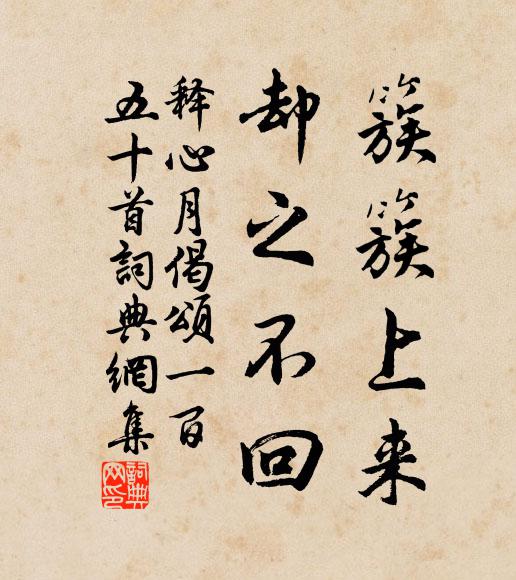 簇簇上来
却之不回
释心月偈頌一百
五十首詞典網集
詞典網印